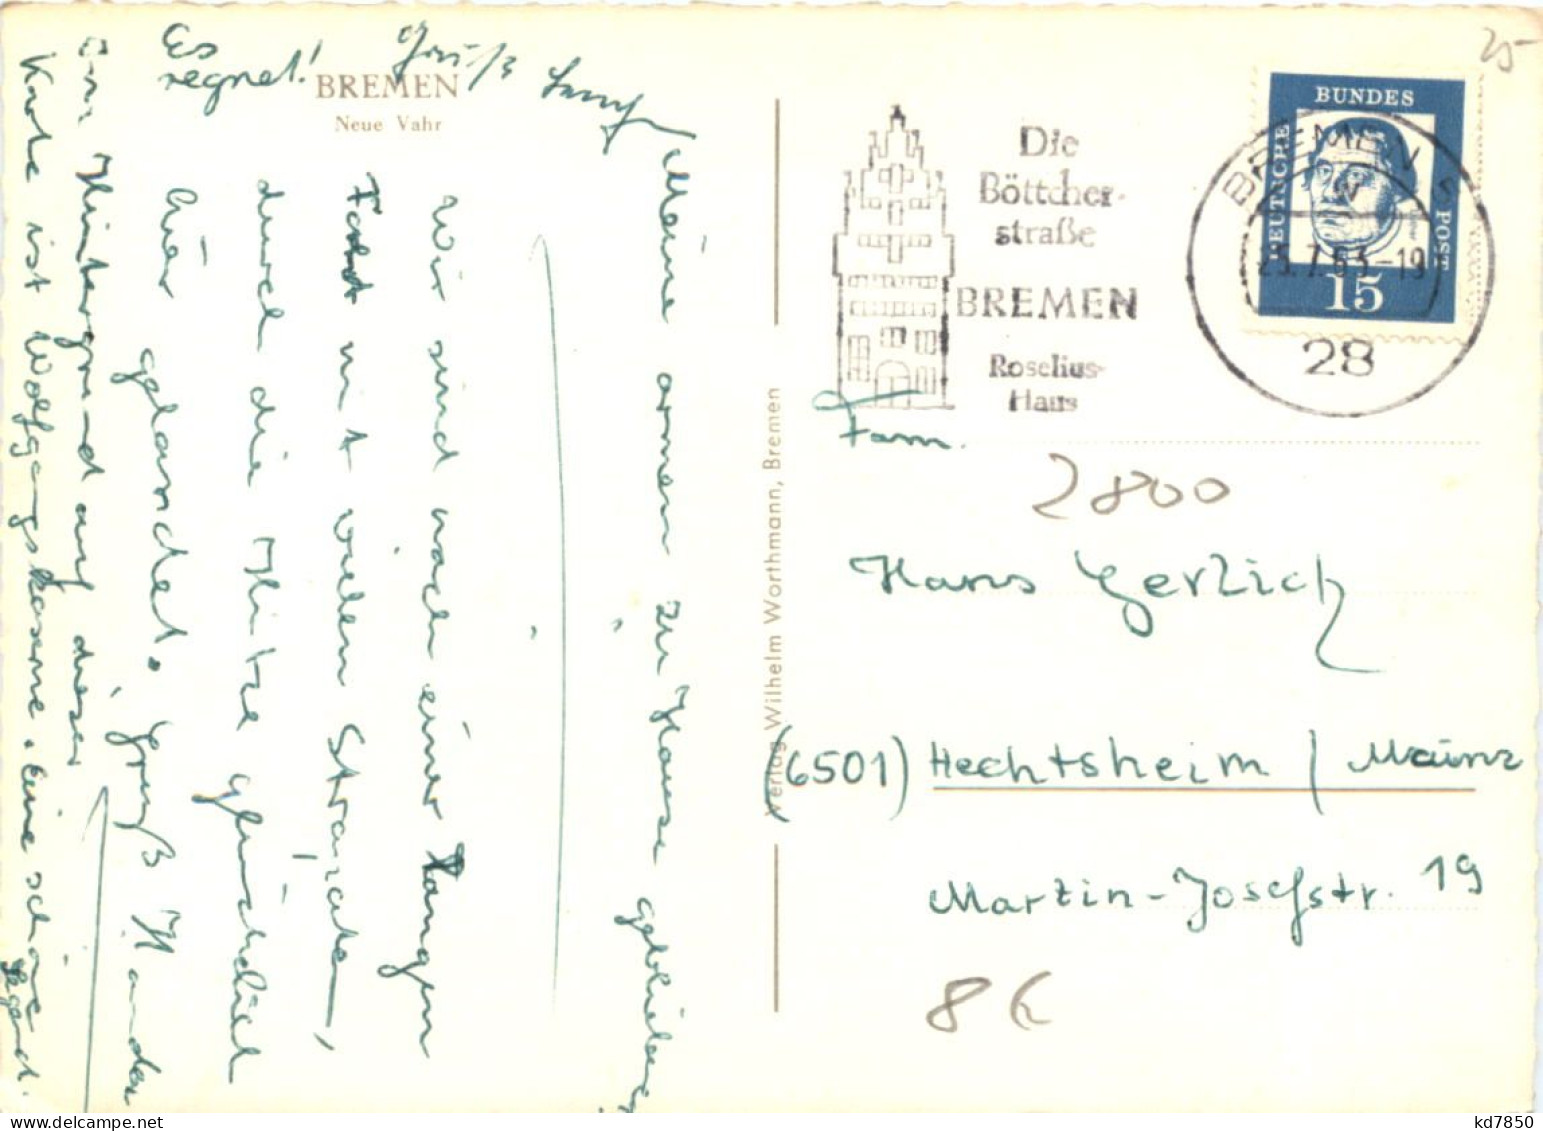 Es
regnet!
Gruß
BREMEN
Neue Vahr
Meine armen zu Hause gebliebenen
Wir sind nach einer langen
Fahrt mit vielen Strapazen,
durch die Hitze glücklich
hier gelandet. Gruß
Im Hintergrund auf dieser
Karte ist Wolfgangskaserne. Eine schöne
Gegend.
Verlag Wilhelm Worthmann, Bremen
Die
Böttcher-
straße
BREMEN
Roselius-
Haus
BREMEN 5
7.63-19
28
DEUTSCHE
BUNDES
POST
15
25-
Fam.
2800
Hans Gerlich
(6501) Hechtsheim / Mainz
Martin-Josefstr. 19
8 €
kd7850